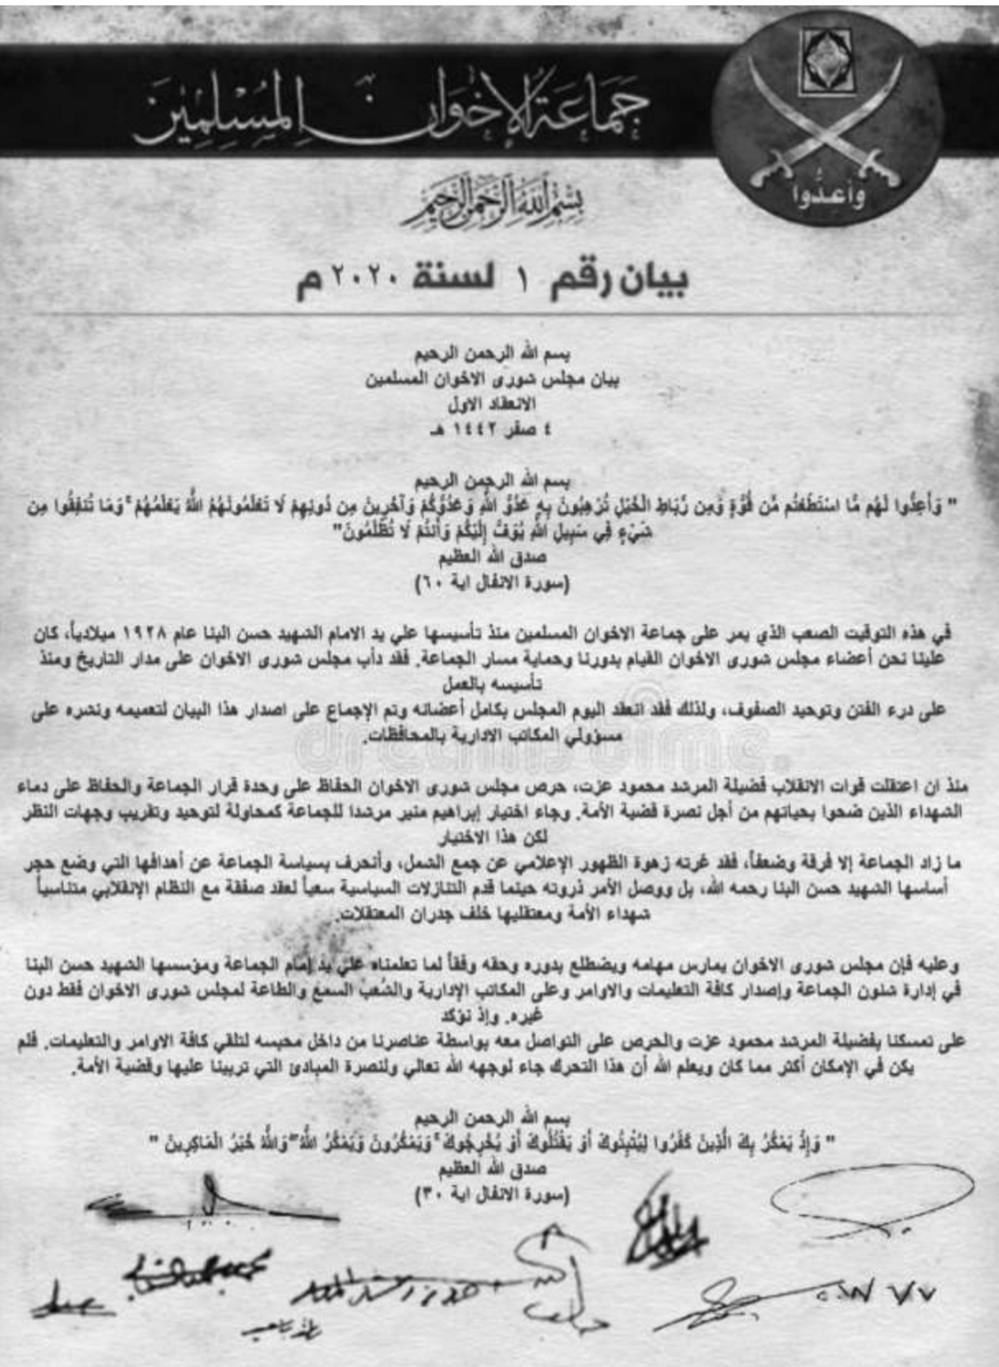 جماعة الإخوان المسلمين
وأعدُّوا
بسم الله الرحمن الرحيم
بيان رقم ١ لسنة ٢٠٢٠ م
بسم الله الرحمن الرحيم
بيان مجلس شورى الاخوان المسلمين
الانعقاد الاول
٤ صفر ١٤٤٢ هـ
بسم الله الرحمن الرحيم
" وَأَعِدُّوا لَهُم مَّا اسْتَطَعْتُم مِّن قُوَّةٍ وَمِن رِّبَاطِ الْخَيْلِ تُرْهِبُونَ بِهِ عَدُوَّ اللَّهِ وَعَدُوَّكُمْ وَآخَرِينَ مِن دُونِهِمْ لَا تَعْلَمُونَهُمُ اللَّهُ يَعْلَمُهُمْ ۚ وَمَا تُنفِقُوا مِن
شَيْءٍ فِي سَبِيلِ اللَّهِ يُوَفَّ إِلَيْكُمْ وَأَنتُمْ لَا تُظْلَمُونَ"
صدق الله العظيم
(سورة الانفال اية ٦٠)
في هذه التوقيت الصعب الذي يمر على جماعة الاخوان المسلمين منذ تأسيسها علي يد الامام الشهيد حسن البنا عام ١٩٢٨ ميلادياً، كان
علينا نحن أعضاء مجلس شورى الاخوان القيام بدورنا وحماية مسار الجماعة. فقد دأب مجلس شورى الاخوان على مدار التاريخ ومنذ
تأسيسه بالعمل
على درء الفتن وتوحيد الصفوف، ولذلك فقد انعقد اليوم المجلس بكامل أعضائه وتم الإجماع على اصدار هذا البيان لتعميمه ونشره على
مسؤولي المكاتب الادارية بالمحافظات.
منذ ان اعتقلت قوات الانقلاب فضيلة المرشد محمود عزت، حرص مجلس شورى الاخوان الحفاظ على وحدة قرار الجماعة والحفاظ على دماء
الشهداء الذين ضحوا بحياتهم من أجل نصرة قضية الأمة. وجاء اختيار إبراهيم منير مرشدا للجماعة كمحاولة لتوحيد وتقريب وجهات النظر
لكن هذا الاختيار
ما زاد الجماعة إلا فرقة وضعفاً، فقد غرته زهوة الظهور الإعلامي عن جمع الشمل، وأنحرف بسياسة الجماعة عن أهدافها التي وضع حجر
أساسها الشهيد حسن البنا رحمه الله، بل ووصل الأمر ذروته حينما قدم التنازلات السياسية سعياً لعقد صفقة مع النظام الإنقلابي متناسياً
شهداء الأمة ومعتقليها خلف جدران المعتقلات.
وعليه فإن مجلس شورى الاخوان يمارس مهامه ويضطلع بدوره وحقه وفقاً لما تعلمناه علي يد إمام الجماعة ومؤسسها الشهيد حسن البنا
في إدارة شئون الجماعة وإصدار كافة التعليمات والاوامر وعلى المكاتب الإدارية والشعب السمع والطاعة لمجلس شورى الاخوان فقط دون
غيره. وإذ نؤكد
على تمسكنا بفضيلة المرشد محمود عزت والحرص على التواصل معه بواسطة عناصرنا من داخل محبسه لتلقي كافة الاوامر والتعليمات. فلم
يكن في الإمكان أكثر مما كان ويعلم الله أن هذا التحرك جاء لوجهه الله تعالي ولنصرة المبادئ التي تربينا عليها وقضية الأمة.
بسم الله الرحمن الرحيم
" وَإِذْ يَمْكُرُ بِكَ الَّذِينَ كَفَرُوا لِيُثْبِتُوكَ أَوْ يَقْتُلُوكَ أَوْ يُخْرِجُوكَ ۚ وَيَمْكُرُونَ وَيَمْكُرُ اللَّهُ ۖ وَاللَّهُ خَيْرُ الْمَاكِرِينَ "
صدق الله العظيم
(سورة الانفال اية ٣٠)
dreamstime.